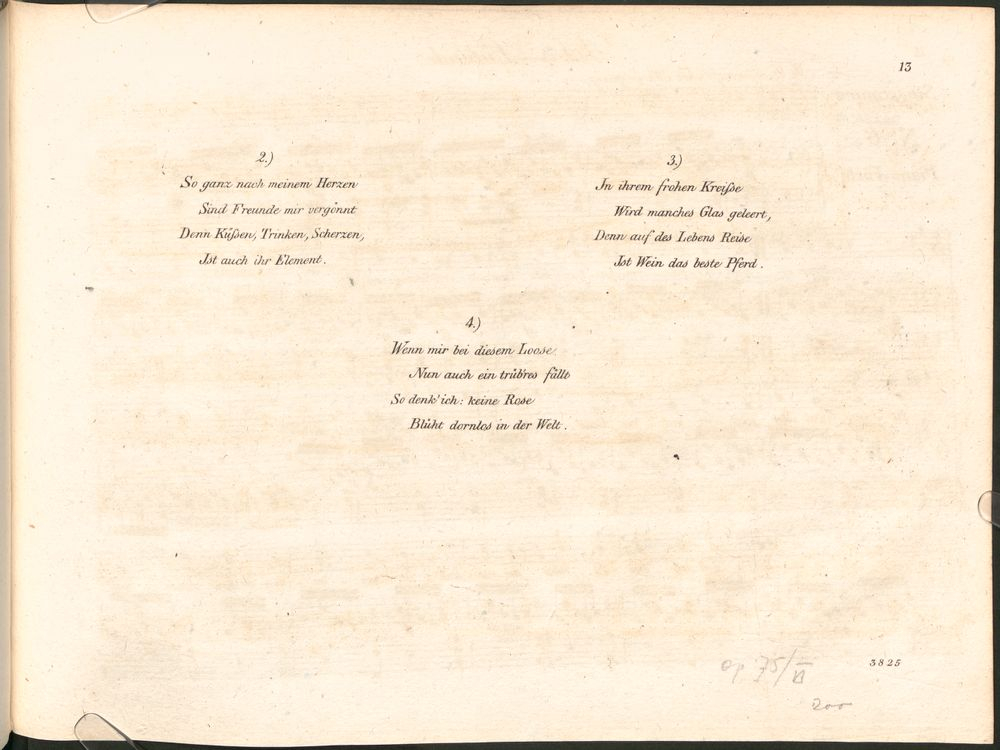 13
2.)
So ganz nach meinem Herzen
Sind Freunde mir vergönnt
Denn Küſsen, Trinken, Scherzen,
Ist auch ihr Element.
3.)
In ihrem frohen Kreiſse
Wird manches Glas geleert,
Denn auf des Lebens Reise
Ist Wein das beste Pferd.
4.)
Wenn mir bei diesem Loose
Nun auch ein trüb'res fällt
So denk' ich: keine Rose
Blüht dornlos in der Welt.
op 75/VI
3825
200